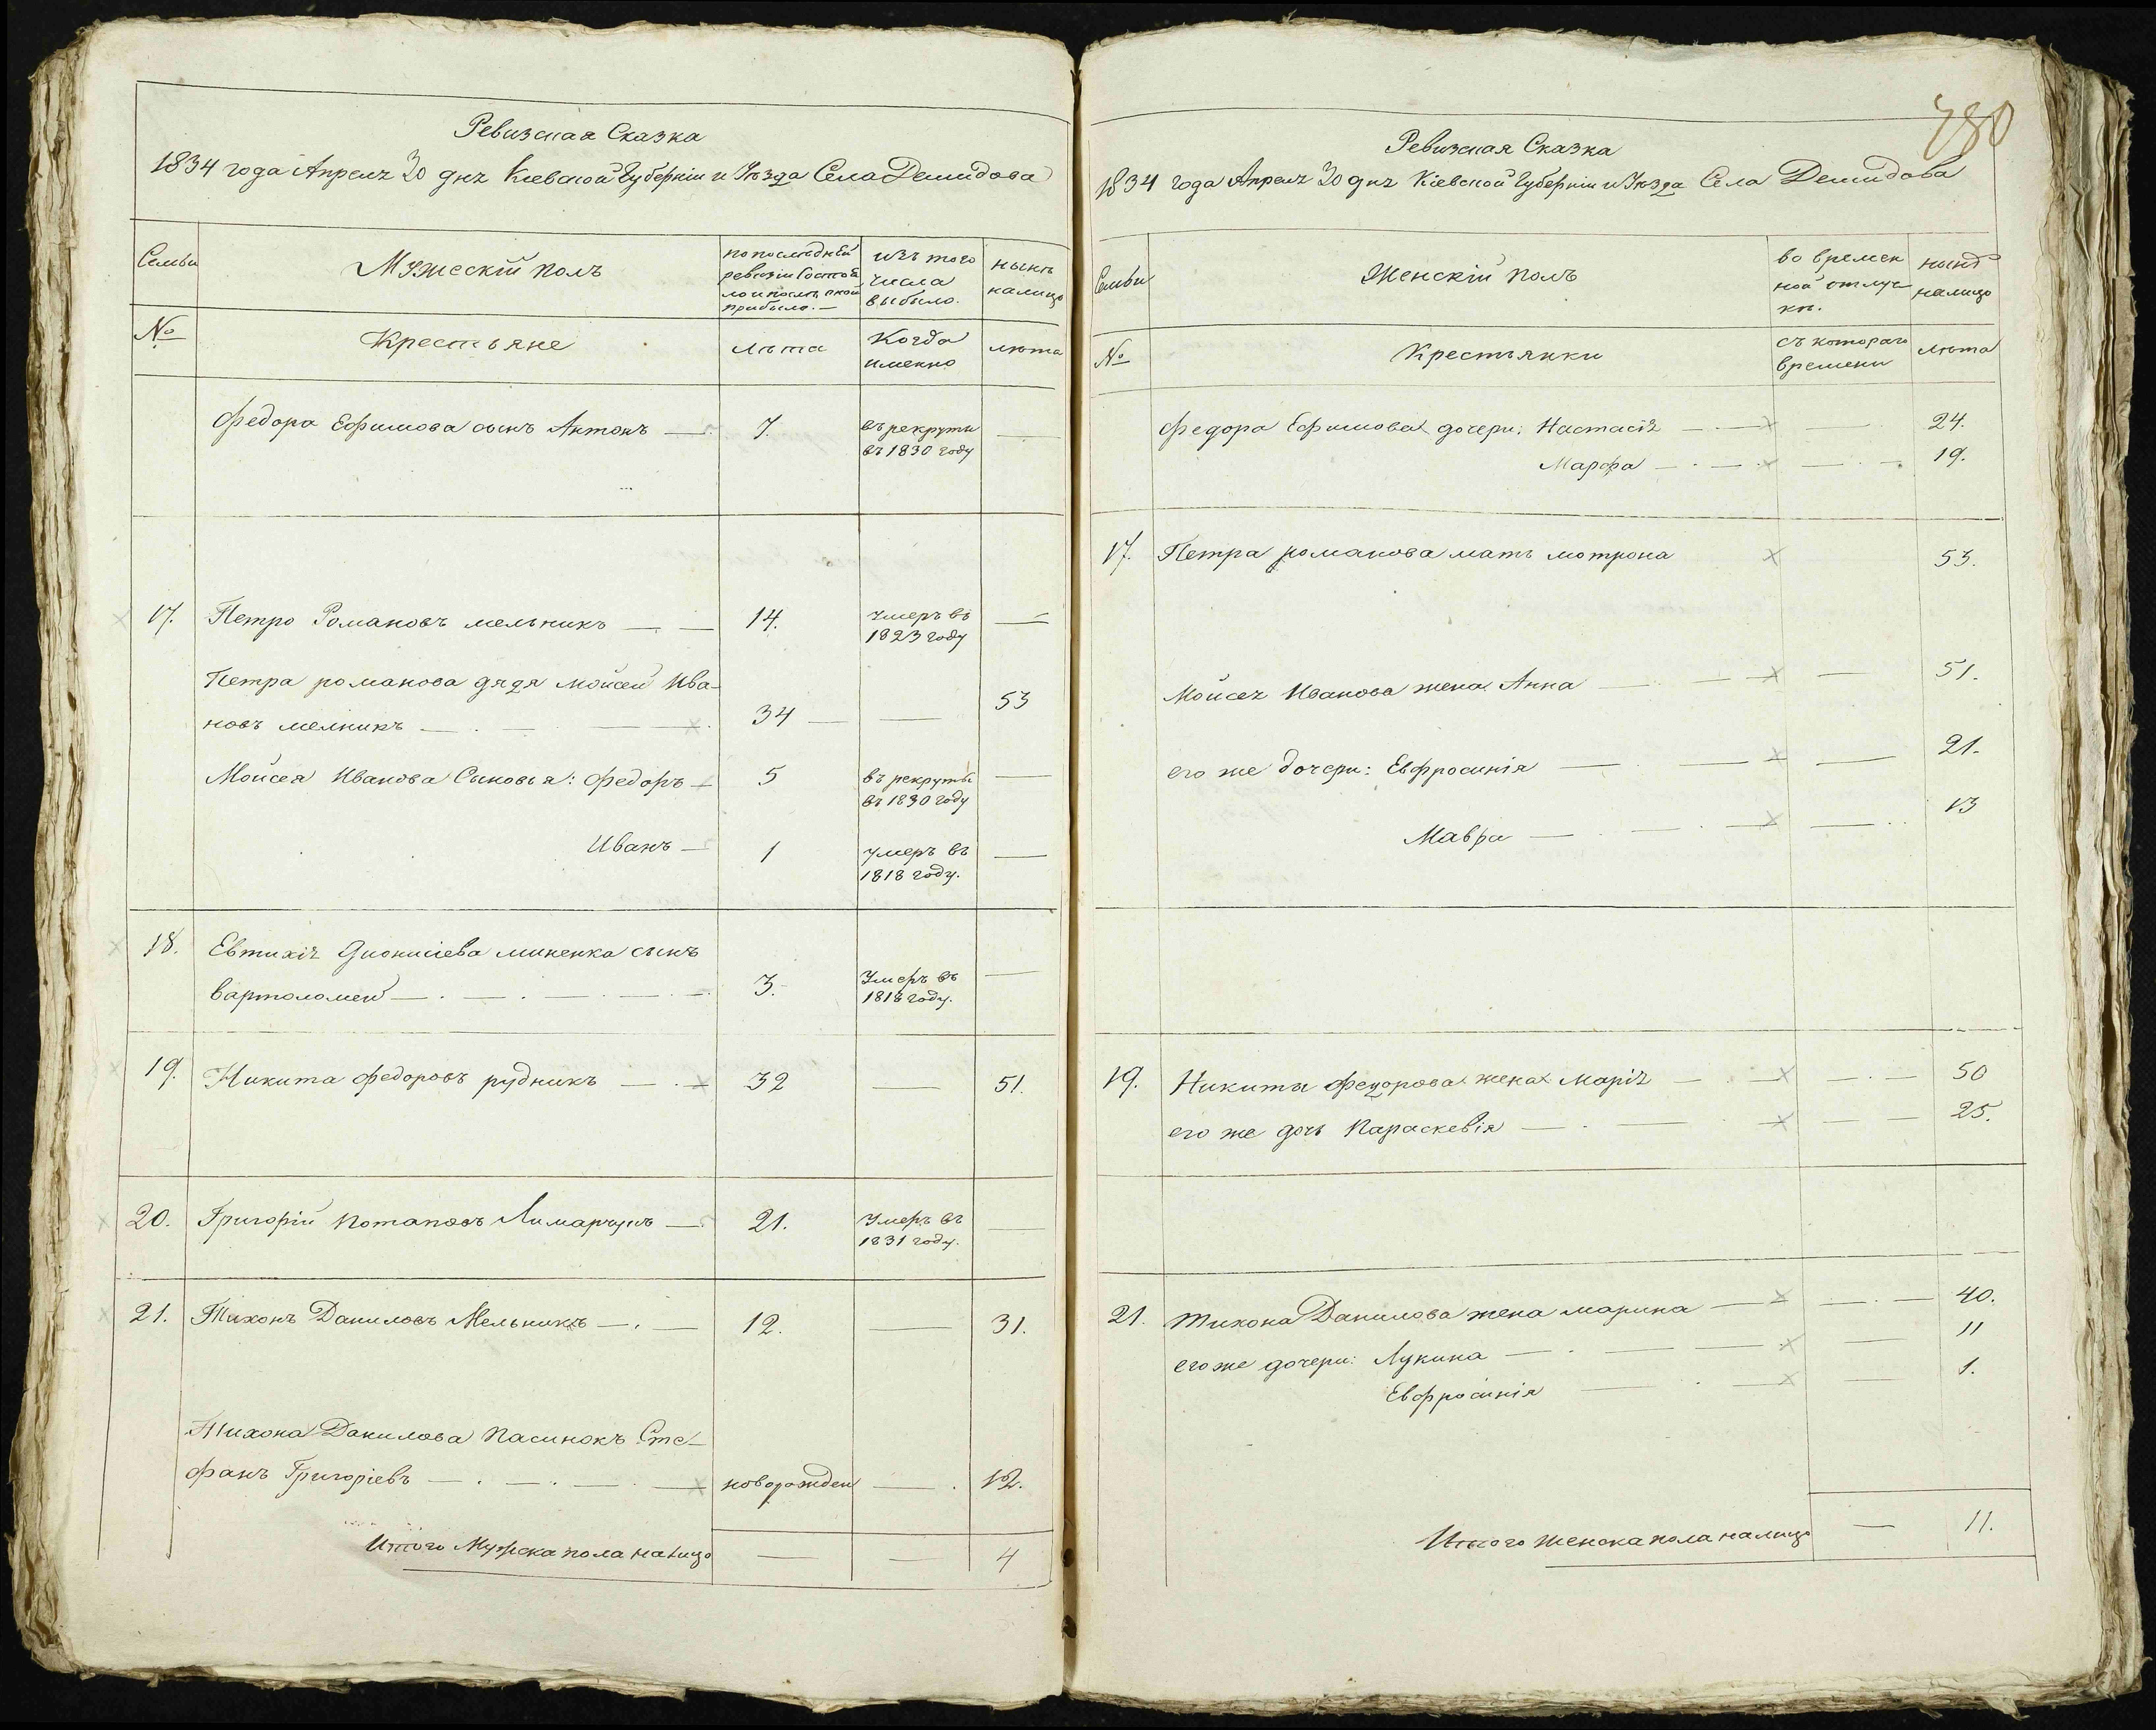 Ревизская Сказка
1834 года Апреля 30 дня Кіевской Губерніи и Уѣзда Села Демидова
Семьи
Мужескій полъ
по последней ревизіи состояло и после оной прибыло.
изъ того числа выбыло.
нынѣ налицо
№
Крестьяне
лѣта
когда именно
лѣта
Федора Ефимова сынъ Антонъ — 7. въ рекруты —
въ 1830 году
17. Петро Романовъ мельникъ — — 14. умеръ въ —
1823 году
Петра романова дядя мойсей Ива-
новъ мелникъ — . — — 34 — — 53
Мойсея Иванова Сыновья: Федоръ — 5 въ рекруты —
въ 1830 году
Иванъ — 1 умеръ въ —
1818 году.
18. Евтихія Дионисіева миненка сынъ
вартоломей — . — . — . — . — 3. Умеръ въ —
1818 году.
19. Никита Федоровъ рудникъ — . — 32 — 51.
20. Григорій Потаповъ Лимарчукъ — 21. Умеръ въ —
1831 году.
21. Тихонъ Даниловъ Мельникъ — . — 12. — 31.
Тихона Данилова Пасинокъ Сте-
фанъ Григоріевъ — . — . — . — новорожден — . 12.
Итого Мужеска пола налицо — — 4
780
Ревизская Сказка
1834 года Апреля 30 дня Кіевской Губерніи и Уѣзда Села Демидова
Семьи
Женскій полъ
во времен
ной отлуч
кѣ.
нынѣ
налицо
№
Крестьянки
съ котораго
времени
лѣта
Федора Ефимова дочери: Настасія — — 24.
Марфа — . — . — . — 19.
17. Петра романова мать мотрона 53.
Мойсея Иванова жена Анна — — — 51.
его же дочери: Евфросинія — . — — 21.
Мавра — . — . — — . 13
19. Никиты Федорова жена Марія — . — — . — 50
его же дочь Параскевія — . — — — 25.
21. Тихона Данилова жена марина — — . — 40.
его же дочери: Лукина — . — — — 11
Евфросинія — . — — 1.
Итого женска пола налицо — 11.